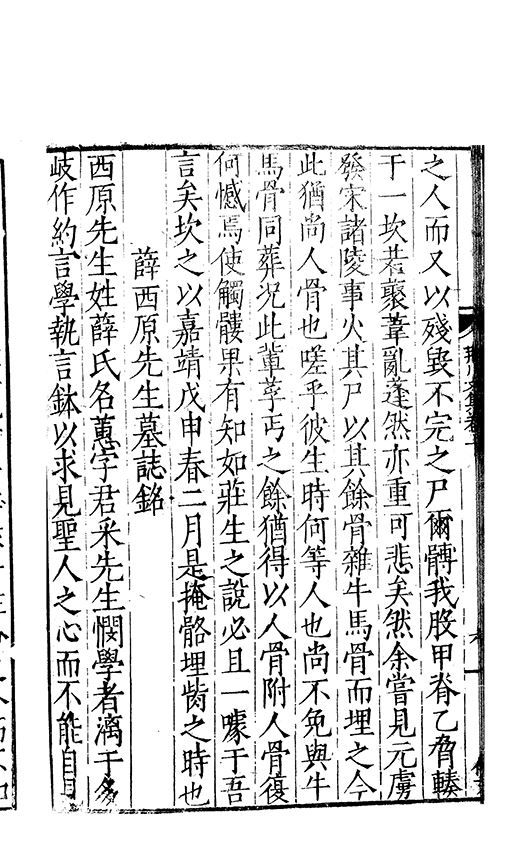 之人而又以殘毀不完之尸爾髆我股甲脊乙脅輳
于一坎若裹葦亂蓬然亦重可悲矣然余嘗見元虜
發宋諸陵事火其尸以其餘骨雜牛馬骨而埋之今
此猶尚人骨也嗟乎彼生時何等人也尚不免與牛
馬骨同葬况此輩莩丐之餘猶得以人骨附人骨復
何憾焉使觸髏果有知如莊生之說必且一噱于吾
言矣坎之以嘉靖戊申春二月是掩骼埋胔之時也
薛西原先生墓誌銘
西原先生姓薛氏名蕙字君采先生憫學者漓于多
岐作約言學執言鉢以求見聖人之心而不能自